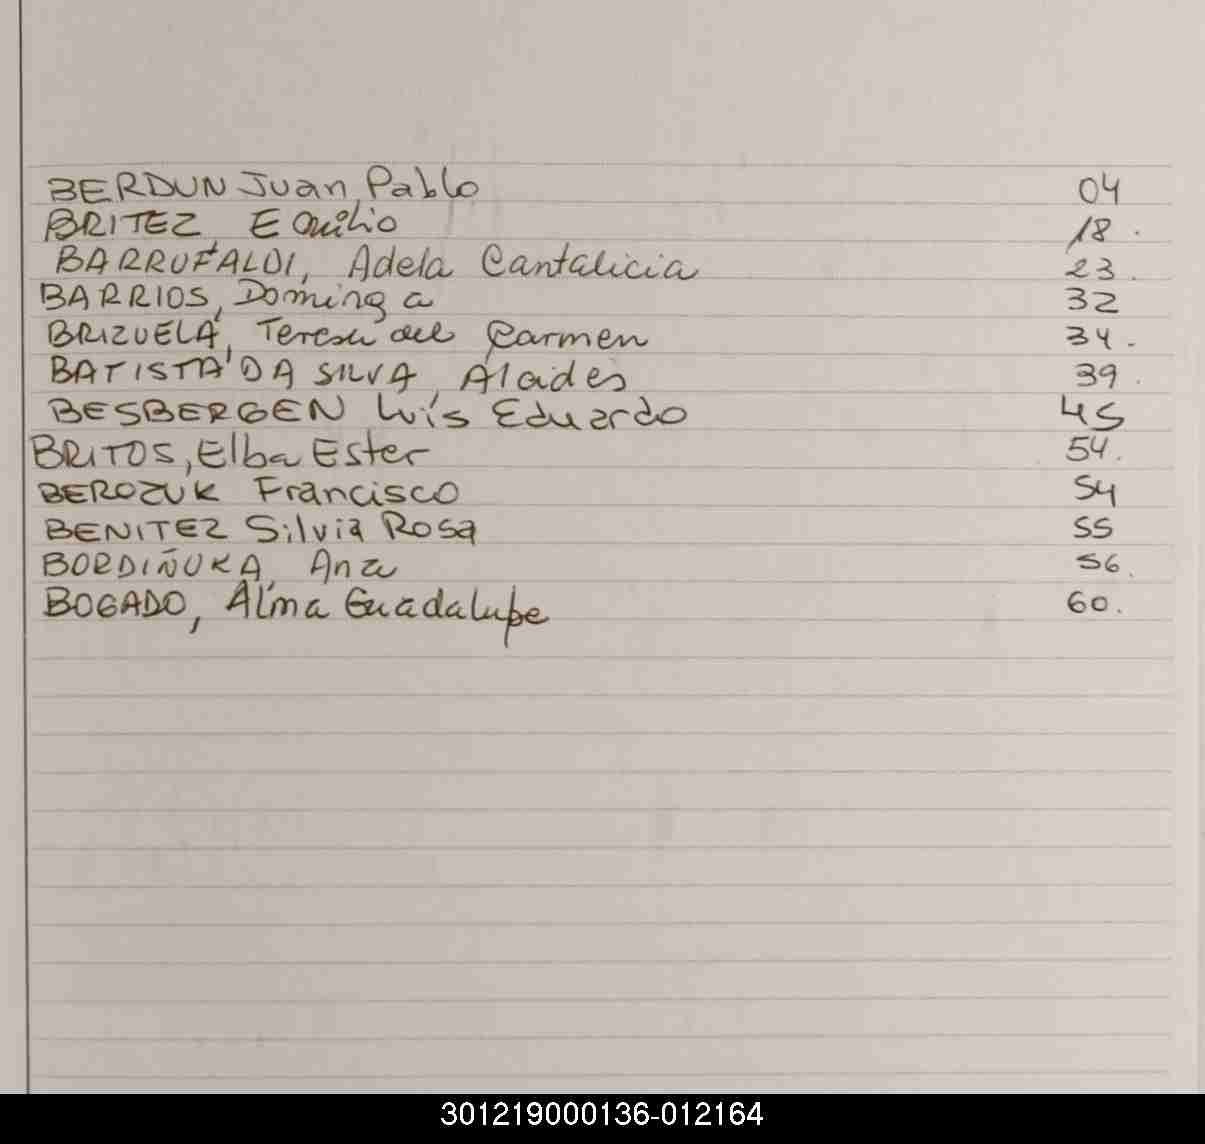 BERDUN Juan Pablo 04
BRITEZ Emilio 18.
BARRUFALDI, Adela Cantalicia 23.
BARRIOS, Dominga 32
BRIZUELA, Teresa del Carmen 34.
BATISTA DA SILVA, Alcides 39.
BESBERGEN Luis Eduardo 45
BRITOS, Elba Ester 54.
BEROZUK Francisco 54
BENITEZ Silvia Rosa 55
BORDIÑUKA, Ana 56.
BOGADO, Alma Guadalupe 60.
301219000136-012164